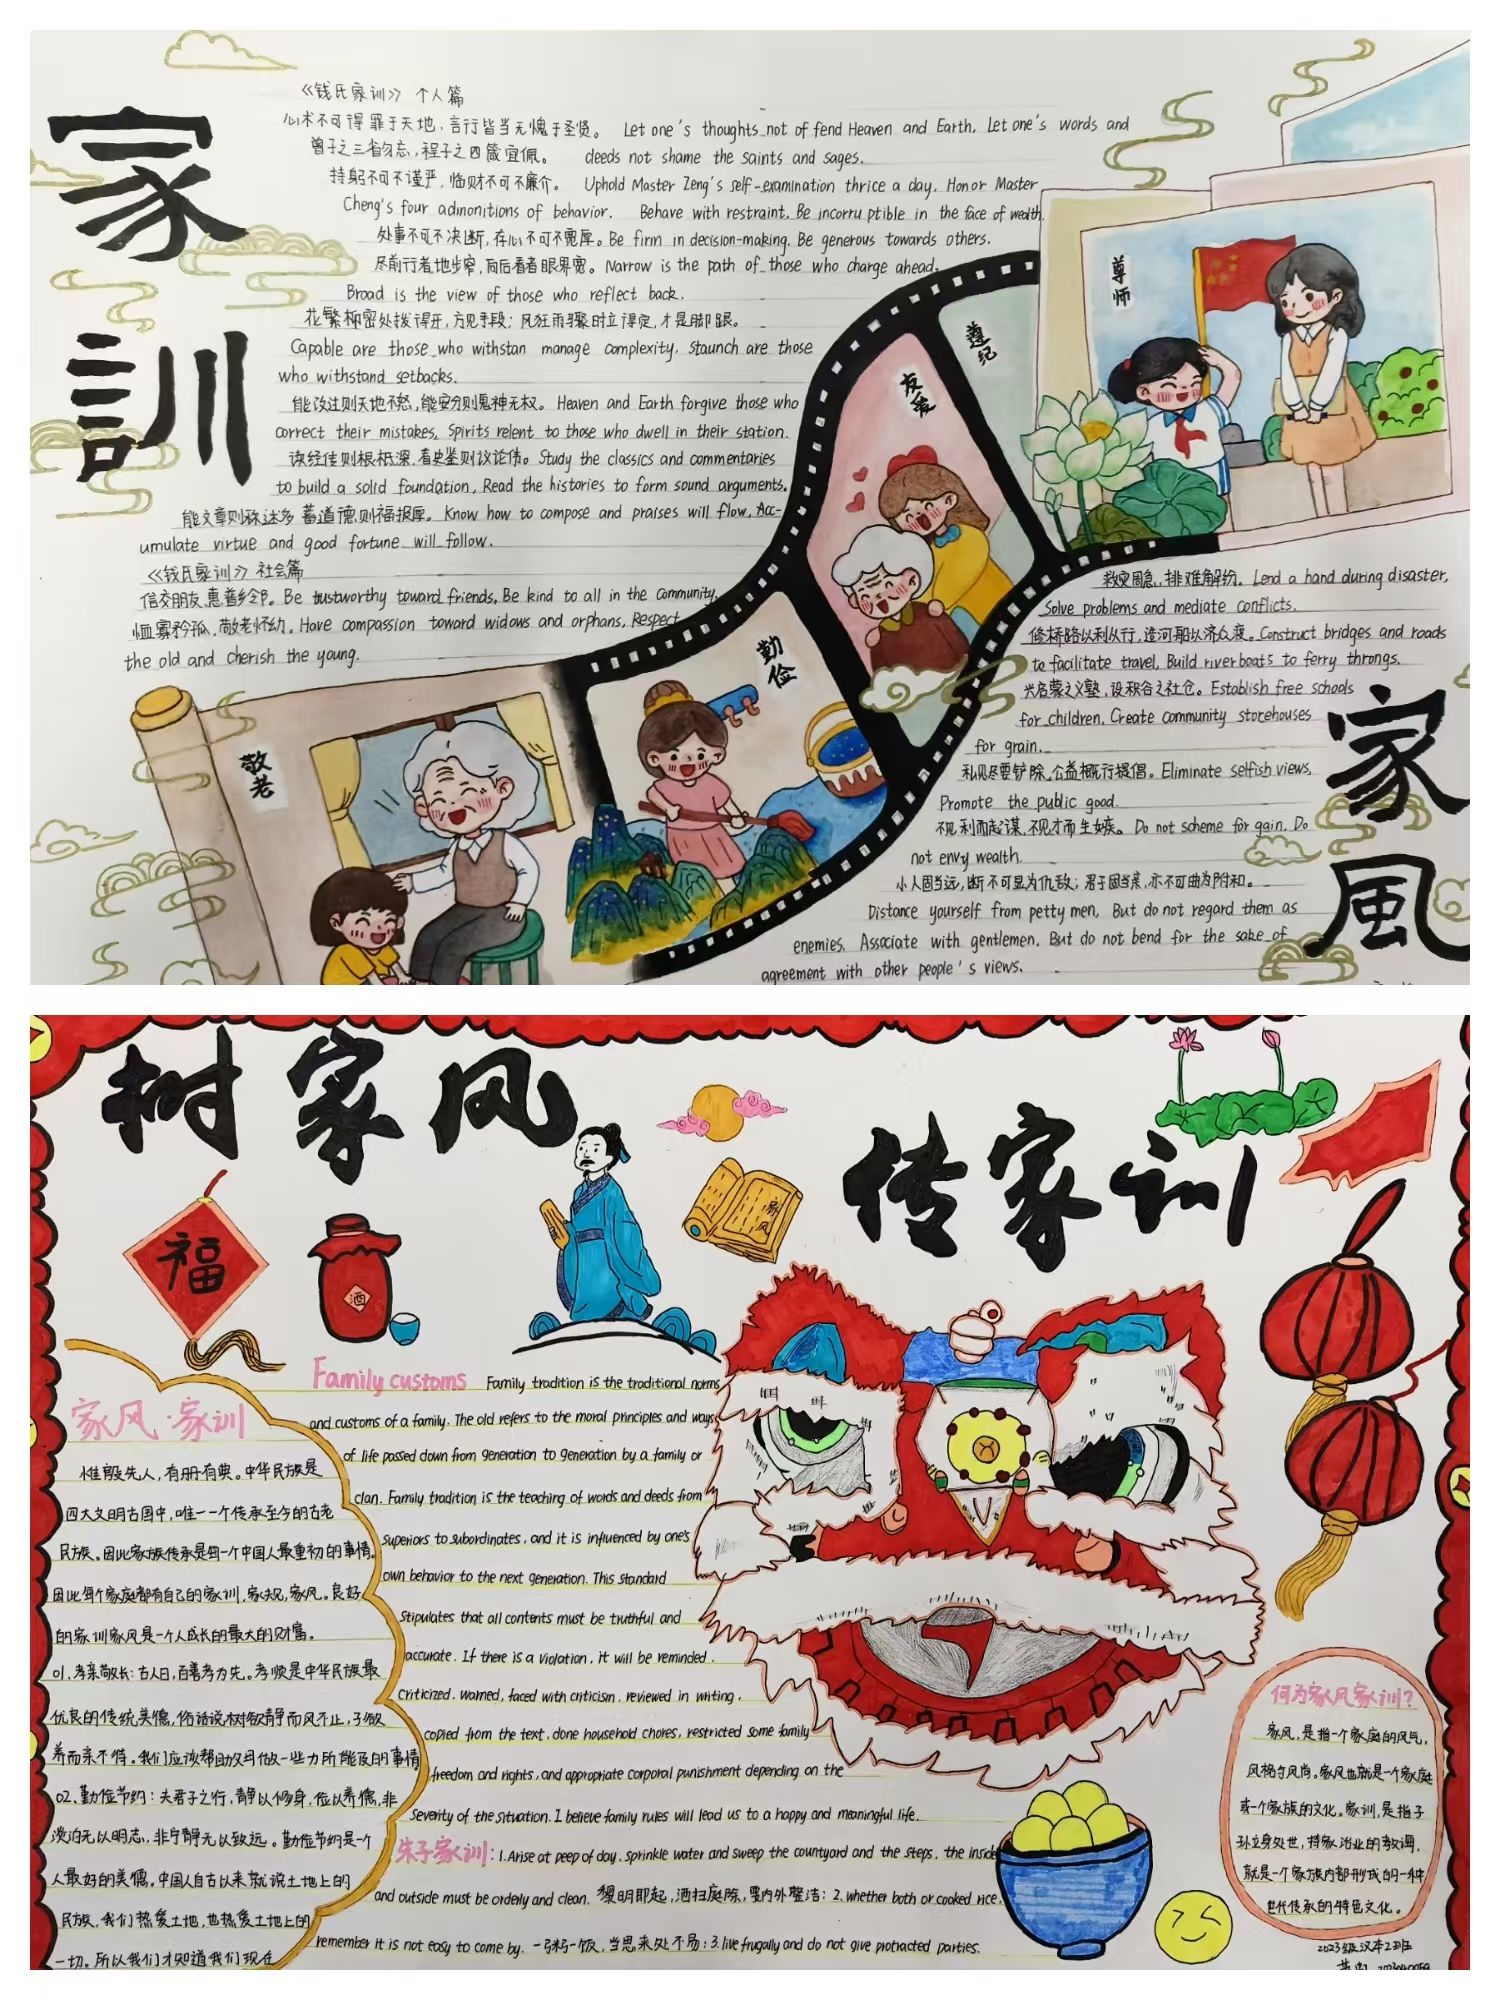 家
训
《钱氏家训》 个人篇
心术不可得罪于天地，言行皆当无愧于圣贤。 Let one's thoughts not of fend Heaven and Earth. Let one's words and
曾子之三省勿忘，程子之四箴宜佩。 deeds not shame the saints and sages.
持躬不可不谨严，临财不可不廉介。 Uphold Master Zeng's self-examination thrice a day. Honor Master
Cheng's four admonitions of behavior. Behave with restraint, Be incorru ptible in the face of wealth.
处事不可不决断，存心不可不宽厚。Be firm in decision-making. Be generous towards others.
尽前行者地步窄，向后看者眼界宽。Narrow is the path of those who charge ahead.
Broad is the view of those who reflect back.
花繁柳密处拨得开，方见手段；风狂雨骤时立得定，才是脚跟。
Capable are those who withstan manage complexity. Staunch are those
who withstand setbacks.
能改过则天地不怒，能安分则鬼神无权。Heaven and Earth forgive those who
correct their mistakes, Spirits relent to those who dwell in their station.
读经传则根柢深，看史鉴则议论伟。Study the classics and commentaries
to build a solid foundation, Read the histories to form sound arguments.
能文章则称述多 蓄道德则福报厚。Know how to compose and praises will flow. Acc-
umulate virtue and good fortune will follow.
《钱氏家训》社会篇
信交朋友，惠普乡邻。Be trustworthy toward friends, Be kind to all in the community.
恤寡矜孤，敬老怀幼。Have compassion toward widows and orphans, Respect
the old and cherish the young.
尊师
遵纪
友爱
勤俭
敬老
救灾周急，排难解纷。Lend a hand during disaster,
Solve problems and mediate conflicts.
修桥路以利从行，造河船以济众渡。Construct bridges and roads
to facilitate travel, Build riverboats to ferry throngs.
兴启蒙之义塾，设积谷之社仓。Establish free schools
for children, Create community storehouses
for grain.
私见尽要铲除，公益概行提倡。Eliminate selfish views,
Promote the public good.
不见利而起谋，不见才而生嫉。Do not scheme for gain. Do
not envy wealth.
小人固当远，断不可显为仇敌；君子固当亲，亦不可曲为附和。
Distance yourself from petty men, But do not regard them as
enemies. Associate with gentlemen. But do not bend for the sake of
agreement with other people's views.
家
風
树家风
传家训
福
酒
家风
家风·家训
惟殷先人，有册有典。中华民族是
四大文明古国中，唯一一个传承至今的古老
民族。因此家族传承是每一个中国人最重初的事情。
因此每个家庭都有自己的家训，家规，家风。良好
的家训家风是一个人成长的最大的财富。
01.孝亲敬长：古人曰，百善孝为先。孝顺是中华民族最
优良的传统美德，俗话说树欲静而风不止，子欲
养而亲不待。我们应该帮助父母做一些力所能及的事情
02.勤俭节约：夫君子之行，静以修身，俭以养德，非
淡泊无以明志，非宁静无以致远。勤俭节约是一个
人最好的美德。中国人自古以来就说土地上的
民族，我们热爱土地，也热爱土地上的
一切。所以我们才知道我们现在
Family customs Family tradition is the traditional norms
and customs of a family. The old refers to the moral principles and ways
of life passed down from generation to generation by a family or
clan. Family tradition is the teaching of words and deeds from
superiors to subordinates, and it is influenced by one's
own behavior to the next generation. This standard
Stipulates that all contents must be truthful and
accurate. If there is a violation, it will be reminded.
criticized, warned, faced with criticism, reviewed in writing,
copied from the text, done household chores, restricted some family
freedom and rights, and appropriate corporal punishment depending on the
severity of the situation. I believe family rules will lead us to a happy and meaningful life.
朱子家训：1.Arise at peep of day, sprinkle water and sweep the countyard and the steps, the inside
and outside must be orderly and clean. 黎明即起，洒扫庭除，要内外整洁；2.whether both or cooked rice,
remember it is not easy to come by. 一粥一饭，当思来处不易；3.live frugally and do not give protracted parties.
何为家风家训？
家风，是指一个家庭的风气，
风格与风尚。家风也就是一个家庭
或一个家族的文化。家训，是指子
孙立身处世，持家治业的教诲，
就是一个家族内部形成的一种
世代传承的特色文化。
2023级汉本2班